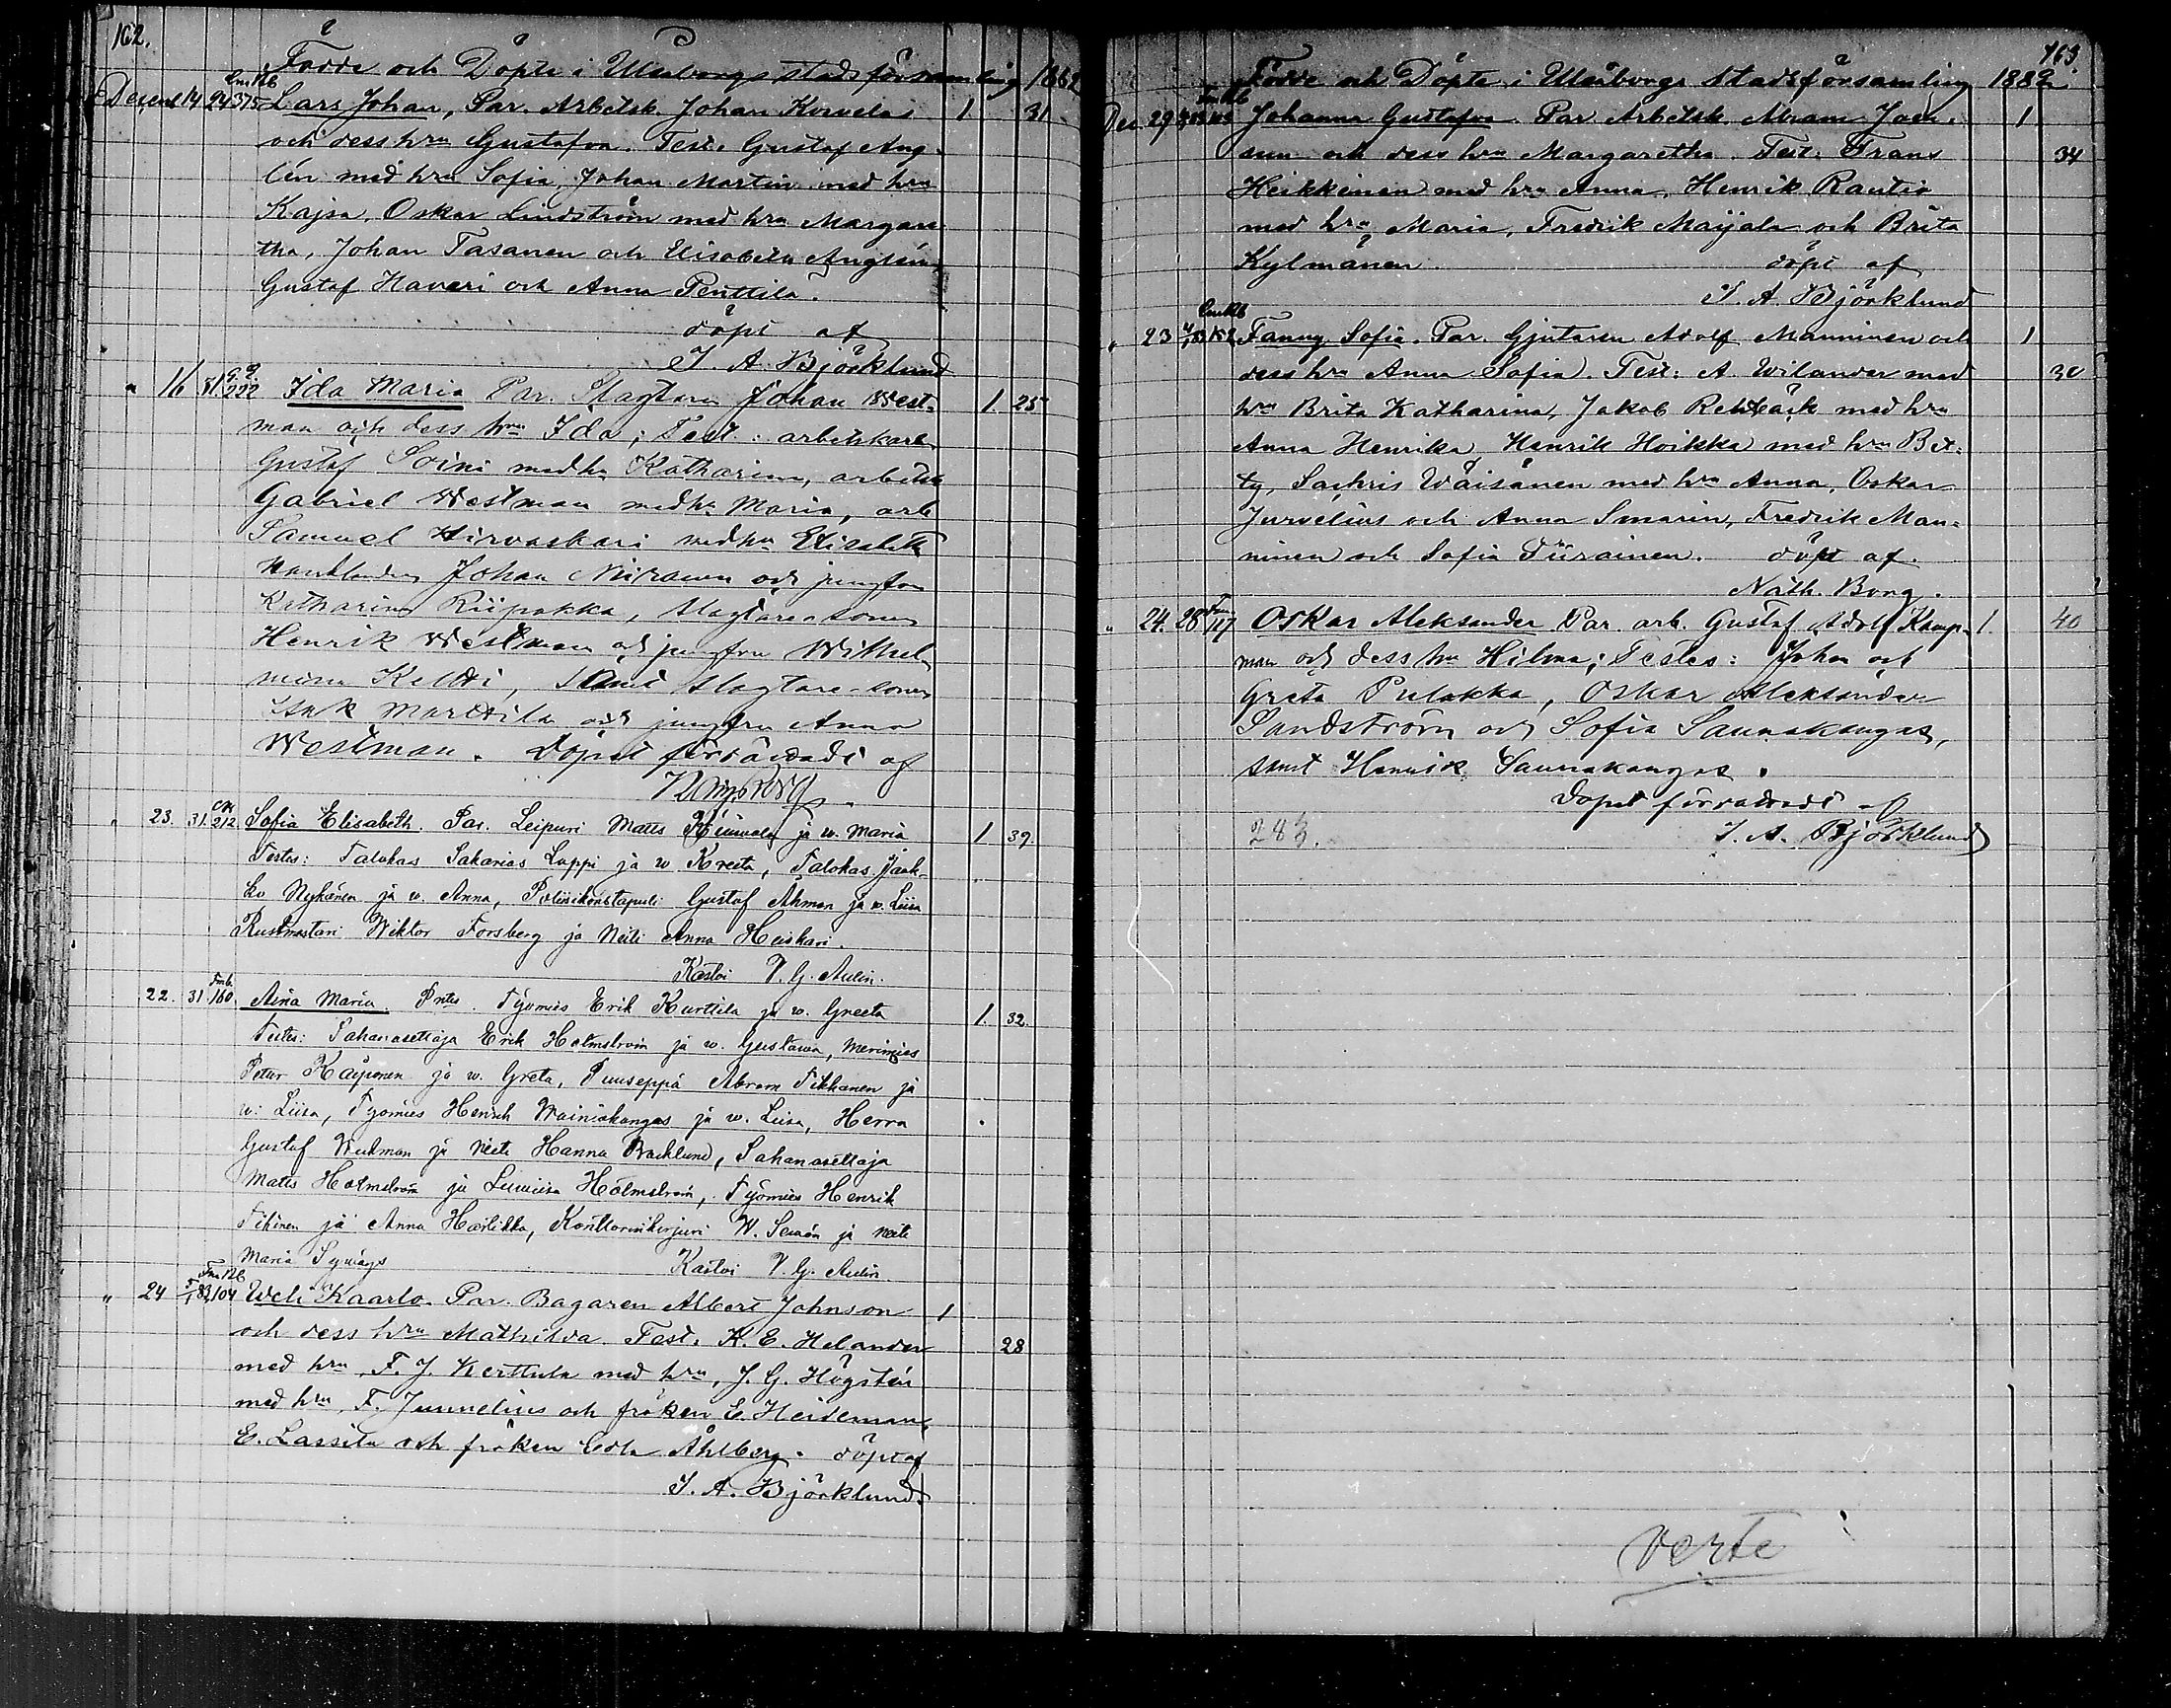 162.
Födde och Döpte i Uleåborgs stadsförsamling 1882
Decemb 14 24 375 Lars Johan, Par. Arbetsk. Johan Korvela 1 31
och dess hru Gustafva. Test. Gustaf Ang-
lén med hru Sofia, Johan Martin med hru
Kajsa, Oskar Lindström med hru Margare-
tha, Johan Tasanen och Elisabeth Anglén
Gustaf Haveri och Anna Penttilä.
döpt af
J. A. Björklund
" 16 31 222 Ida Maria Par. Slagtaren Johan West- 1. 25
man och dess hru Ida; Test.: arbetskarl
Gustaf Soini med hu Katharina, arbetsk
Gabriel Westman med hu Maria, arb
Samuel Hirvaskari med hu Elisabeth
Handlanden Johan och jungfru
Katharina Riipakka, slagtaresonen
Henrik Westman och jungfru Wilhel-
mina Keltti, samt slagtare-sonen
Isak Marttila och jungfru Anna
Westman. Dopet förrättadt af
" 23. 31. 212 Sofia Elisabeth. Par. Leipuri Matts ja w. Maria 1 39.
Testes: Talokas Sakarias Lappi ja w. Kreeta, Talokas Jaak-
ko Nykänen ja w. Anna, Poliisikonstapuli Gustaf Åhman ja w. Liisa
Rustmestari Wiktor Forsberg ja Neiti Anna Heiskari.
Kastoi P. G. Aulin.
22. 31. 160. Aina Maria. Prtes. Työmies Erik Kurttila ja w. Greeta 1. 32.
Testes: Sahanasettaja Erik Holmström ja w. Gustawa, Merimies
Petur Käyponen ja w. Greta, Puuseppä Abram Tikkanen ja
w. Liisa, Työmies Henrik Wainiokangas ja w. Liisa, Herra
Gustaf Wickman ja Neiti Hanna Backlund, Sahanasettaja
Matts Holmström ja Lowiisa Holmström, Työmies Henrik
Tikinen ja Anna Harlikka, Konttorinkirjuri W. Semán ja Neiti
Maria
Kastoi P. G. Aulin.
" 24 5/1 83 104 Weli Kaarlo. Par. Bagaren Albert Johnson 1
och dess hru Mathilda. Test. K. E. Helander 28
med hru, F. J. Kerttula med hru, J. G. Högstén
med hru, F. Junnelius och fröken E. Heideman,
E. Lassila och fröken Edla Åhlberg. döpt af
J. A. Björklund.
163
Födde och Döpte i Uleåborgs Stadsförsamling 1882
Dec. 29 83 103 Johanna Gustafva. Par Arbetsk. Abram Joen- 1
suu och dess hru Margaretha. Test: Frans 34
Heikkinen med hru Anna, Henrik Rautio
med hru Maria, Fredrik Maijala och Brita
Kylmänen. döpt af
J. A. Björklund
" 23 4/1 83 152 Fanny Sofia. Par. Gjutaren Adolf Manninen och 1
dess hru Anna Sofia. Test: A. Wilander med 30
hru Brita Katharina, Jakob Rehbäck med hru
Anna Henrika, Henrik Hoikka med hru Bet-
ty, Sachris Wäisänen med hru Anna, Oskar
Jurvelius och Anna Smarin, Fredrik Man-
ninen och Sofia Piirainen. döpt af.
Nath. Borg.
" 24. 28 117 Oskar Aleksander Par. arb. Gustaf Adolf Kamp- 1. 40
man och dess hu Hilma; Testes: Johan och
Greta Pulakka, Oskar Aleksander
Sandström och Sofia Saunakangas,
samt Henrik Saunakangas.
Dopet förrättadt af
283. J. A. Björklund
verte